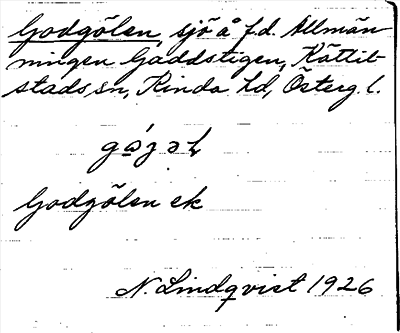 Godgölen, sjö å f.d. Allmän-
ningen Gaddstigen, Kättil-
stads sn, Kinda hd, Österg. l.
Godgölen ek
N. Lindqvist 1926